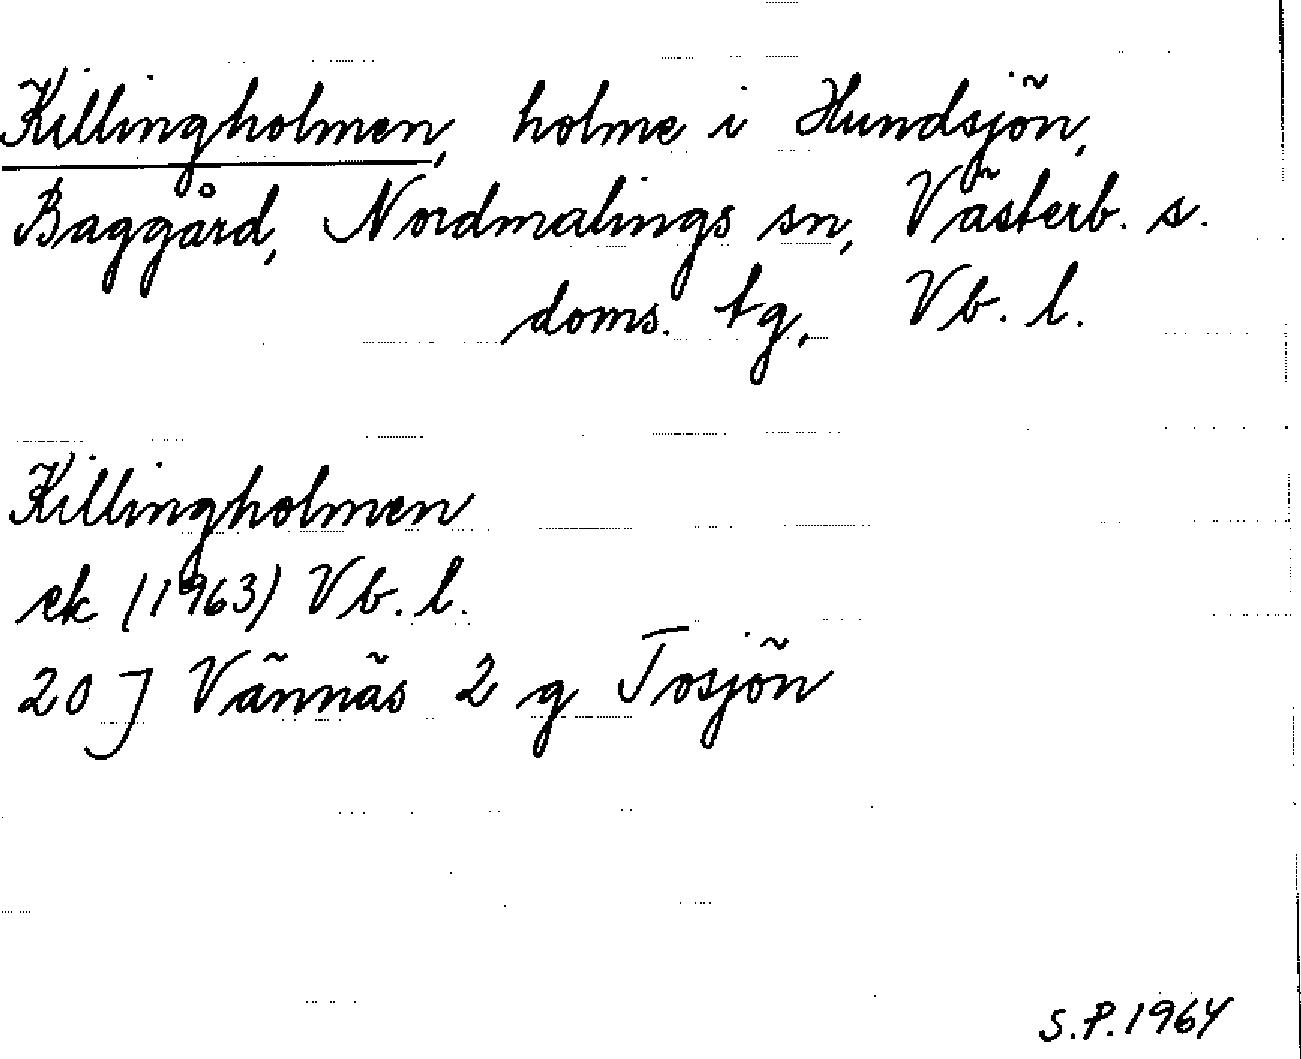 Killingholmen, holme i Hundsjön,
Baggård, Nordmalings sn, Västerb. s.
doms. tg, Vb. l.
Killingholmen
ek (1963) Vb. l.
20 J Vännäs 2 g Tosjön
S.P. 1964